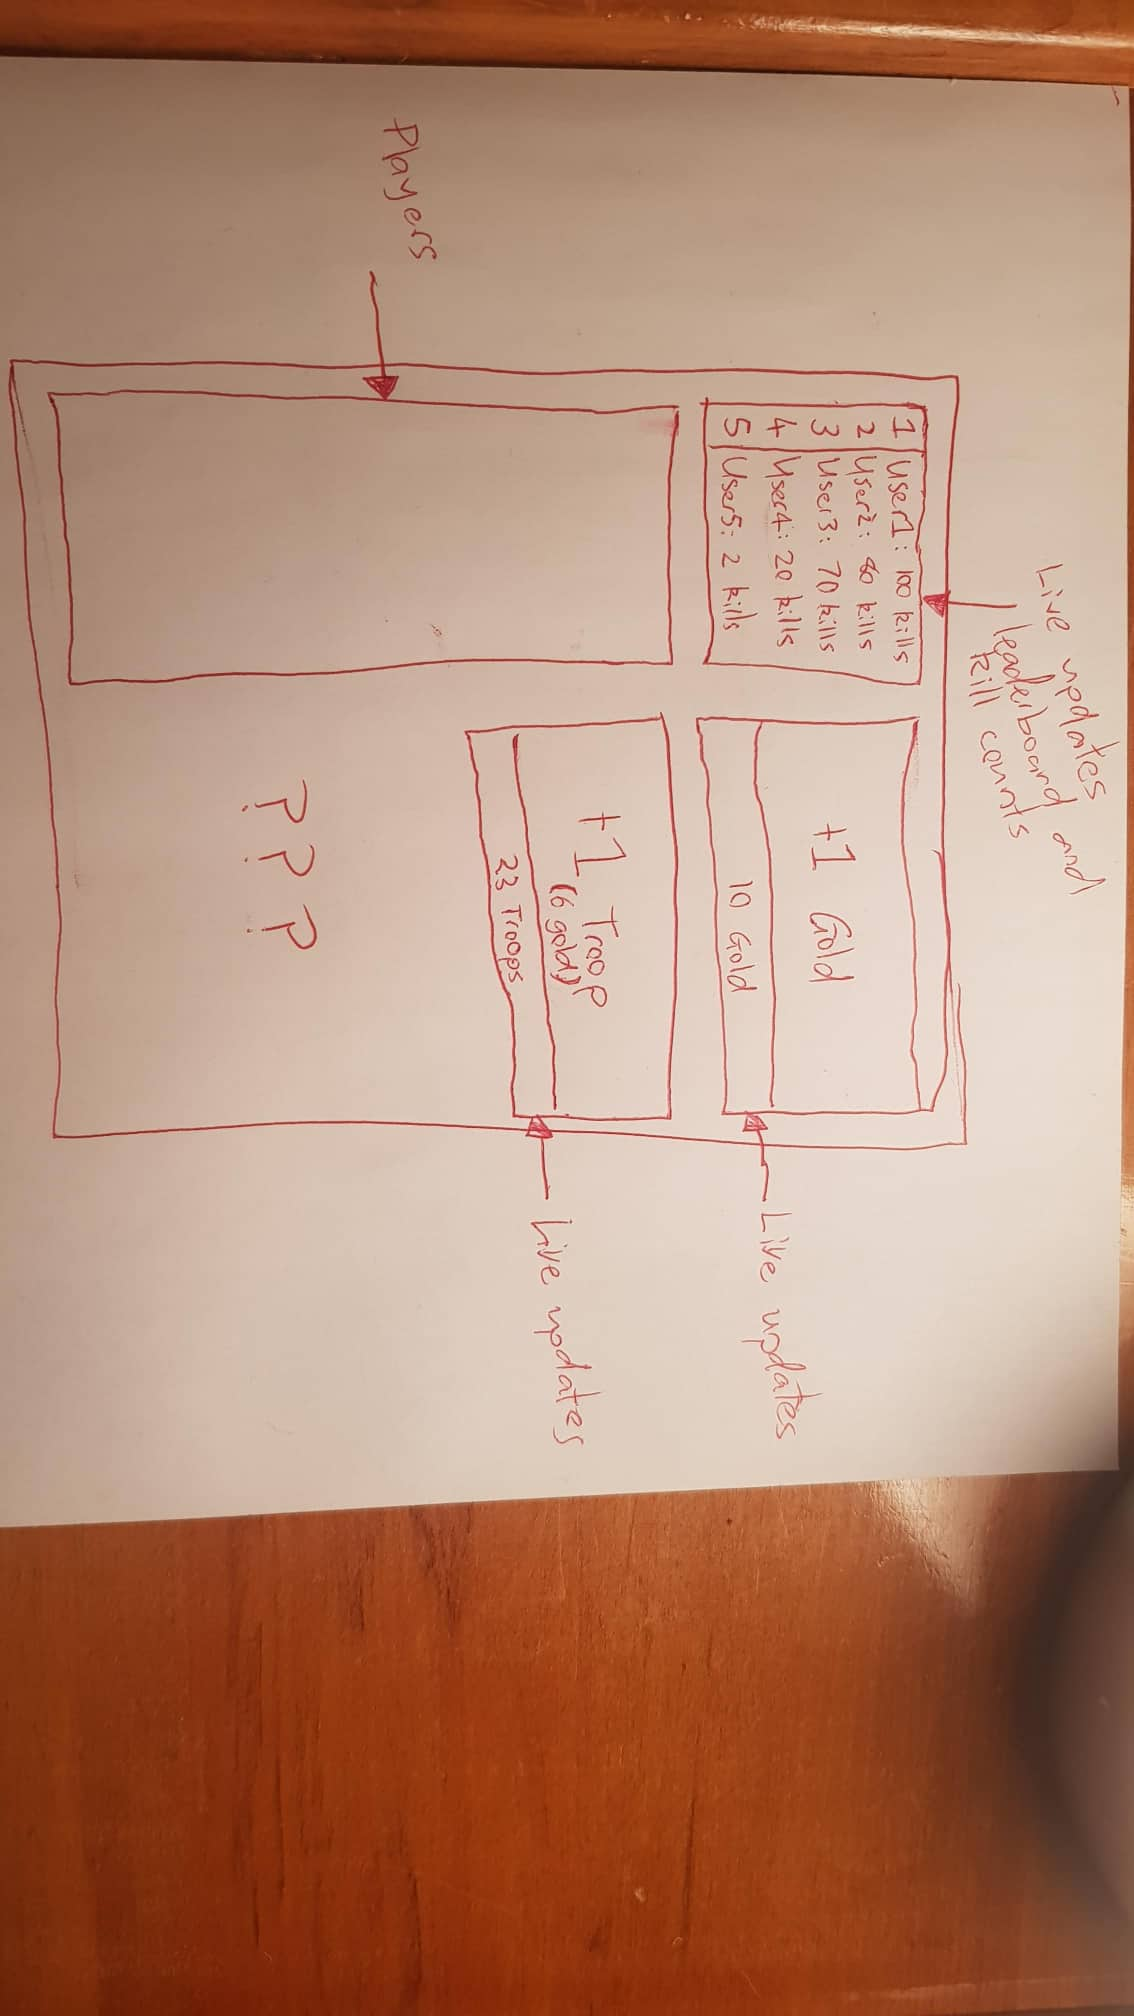 Live updates
leaderboard and
kill counts
1 User1: 100 kills
2 User2: 80 kills
3 User3: 70 kills
4 User4: 20 kills
5 User5: 2 kills
+1 Gold
10 Gold
Live updates
Players
+1 Troop
(6 gold)
23 Troops
Live updates
???